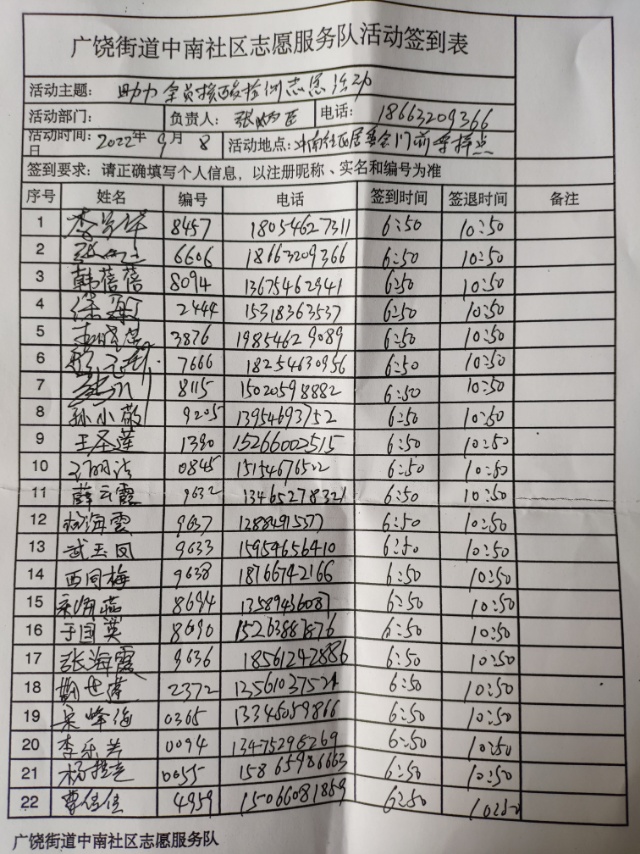 广饶街道中南社区志愿服务队活动签到表
活动主题: 助力全员核酸检测志愿活动
活动部门: 负责人: 电话: 18663209366
活动时间: 2022年9月8日 活动地点: 中南社区居委会门前采样点
签到要求: 请正确填写个人信息，以注册昵称、实名和编号为准
序号 姓名 编号 电话 签到时间 签退时间 备注
1 8457 18054627311 6:50 10:50
2 6606 18663209366 6:50 10:50
3 韩蓓蓓 8094 13675462941 6:50 10:50
4 2444 15318363537 6:50 10:50
5 3876 19854629089 6:50 10:50
6 7666 18254630956 6:50 10:50
7 8115 15020598882 6:50 10:50
8 孙小敬 9205 13954693752 6:50 10:50
9 王圣莲 1390 15266002515 6:50 10:50
10 0845 6:50 10:50
11 薛云霞 9632 13465278321 6:50 10:50
12 杨海霞 9637 6:50 10:50
13 武玉凤 9633 15959656410 6:50 10:50
14 西同梅 9638 18766742166 6:50 10:50
15 8694 13589456087 6:50 10:50
16 于国英 8690 15263887876 6:50 10:50
17 张海霞 9636 18561242886 6:50 10:50
18 2372 13561037524 6:50 10:50
19 宋峰海 0365 13345059866 6:50 10:50
20 李乐芳 0094 13475295269 6:50 10:50
21 0055 15865986663 6:50 10:50
22 曹佳佳 4959 15066081859 6:50 10:50
广饶街道中南社区志愿服务队